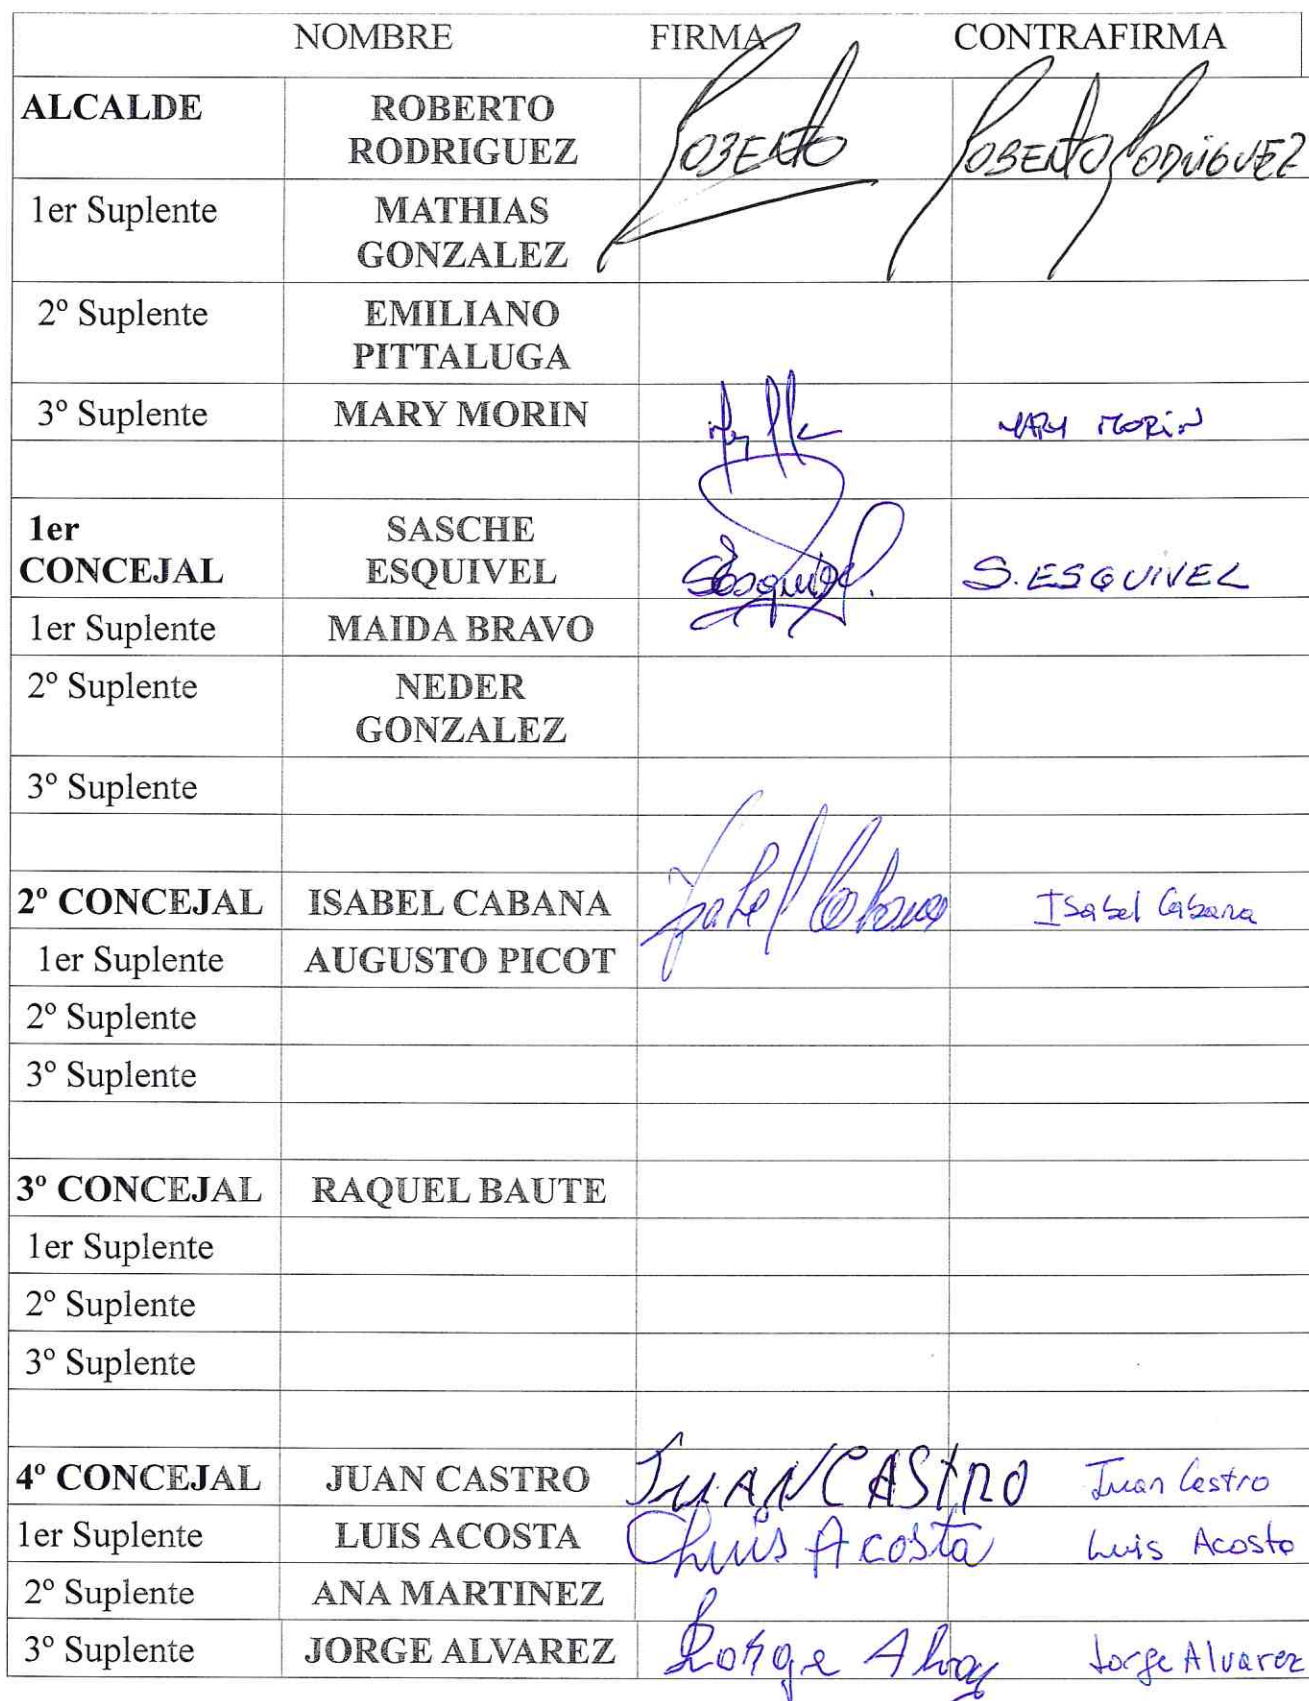 NOMBRE FIRMA CONTRAFIRMA
ALCALDE ROBERTO RODRIGUEZ ROBERTO ROBERTO RODRIGUEZ
1er Suplente MATHIAS GONZALEZ
2º Suplente EMILIANO PITTALUGA
3º Suplente MARY MORIN MARY MORIN
1er CONCEJAL SASCHE ESQUIVEL SEsquivel. S. ESQUIVEL
1er Suplente MAIDA BRAVO
2º Suplente NEDER GONZALEZ
3º Suplente
2º CONCEJAL ISABEL CABANA Isabel Cabana Isabel Cabana
1er Suplente AUGUSTO PICOT
2º Suplente
3º Suplente
3º CONCEJAL RAQUEL BAUTE
1er Suplente
2º Suplente
3º Suplente
4º CONCEJAL JUAN CASTRO JUAN CASTRO Juan Castro
1er Suplente LUIS ACOSTA Luis Acosta Luis Acosta
2º Suplente ANA MARTINEZ
3º Suplente JORGE ALVAREZ Jorge Alvarez